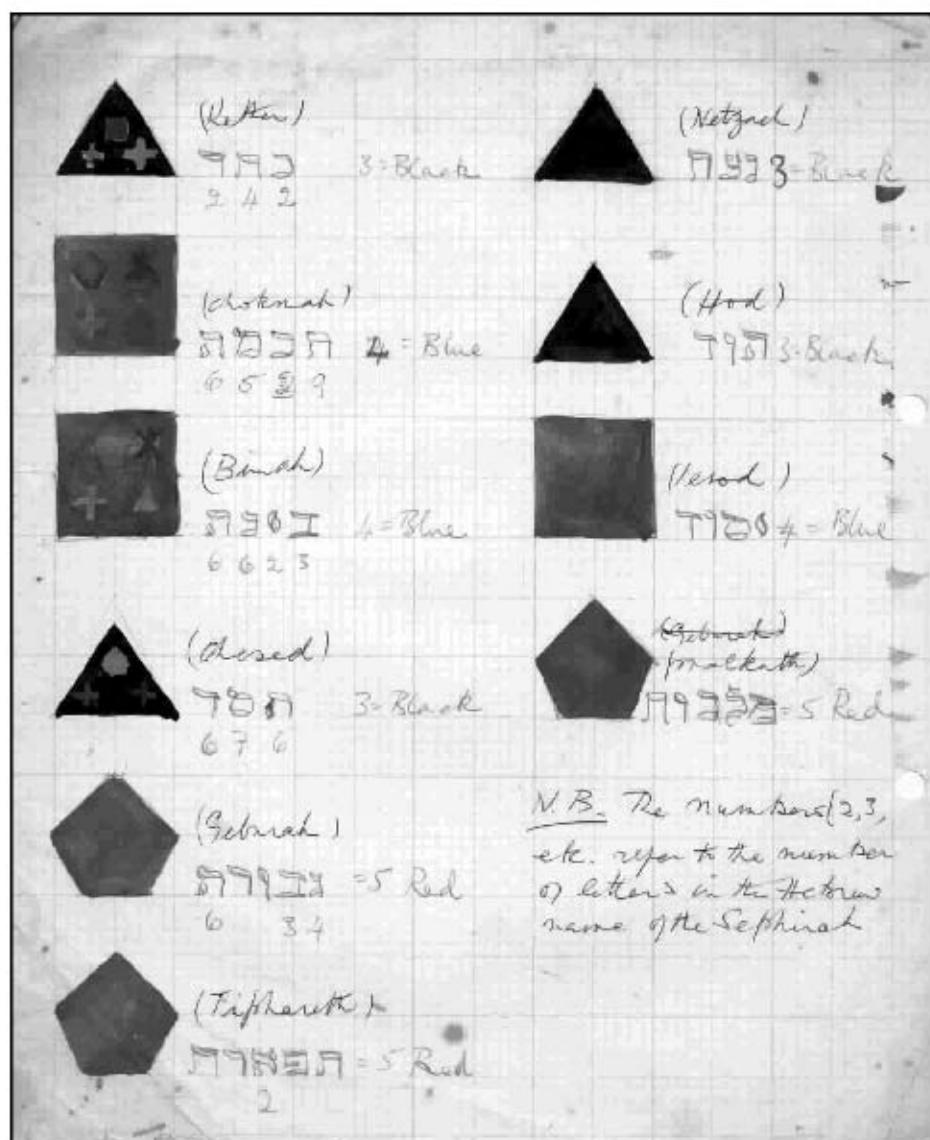 (Kether)
כתר 3=Black
2 4 2
(Chokmah)
חכמה 4 = Blue
6 5 2 9
(Binah)
בינה 4=Blue
6 6 2 3
(Chesed)
חסד 3=Black
6 7 6
(Geburah)
גבורה =5 Red
6 3 4
(Tiphareth)
תפארת = 5 Red
2
(Netzach)
נצח 3=Black
(Hod)
הוד 3=Black
(Iesod)
יסוד 4 = Blue
(Geburah)
(Malkuth)
מלכות = 5 Red
N.B. The numbers (2,3,
etc. refer to the number
of letters in the Hebrew
name of the Sephirah